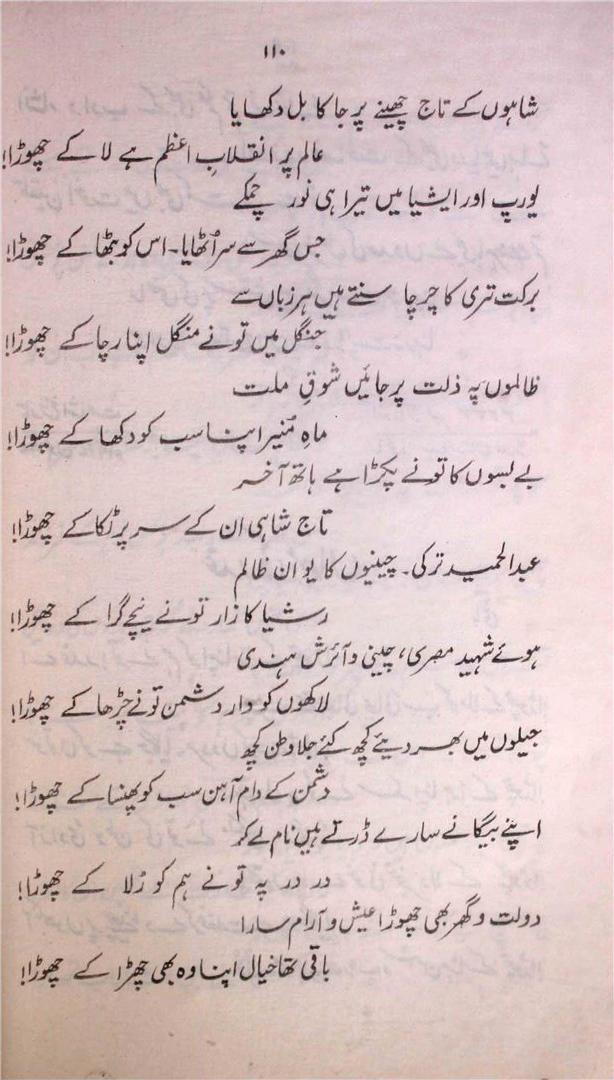 ۱۱۰
شاہوں کے تاج چھینے پرجا کا بل دکھایا
عالم پر انقلابِ اعظم ہے لا کے چھوڑا!
یورپ اور ایشیا میں تیرا ہی نور چمکے
جس گھر سے سر اُٹھایا۔ اس کو بٹھا کے چھوڑا!
برکت تری کا چرچا سنتے ہیں ہر زباں سے
جنگل میں تو نے منگل اپنا رچا کے چھوڑا!
ظالموں پہ ذلت پرجائیں شوقِ ملت
ماہِ مُنیر اپنا سب کو دکھا کے چھوڑا!
بے بسوں کا تو نے پکڑا ہے ہاتھ آخر
تاج شاہی ان کے سر پر ٹکا کے چھوڑا!
عبدالحمید ترکی۔ چینیوں کا یو ان ظالم
رشیا کا زار تو نے نیچے گرا کے چھوڑا!
ہوئے شہید مصری، چینی و آئرش ہندی
لاکھوں کو دار دشمن تو نے چڑھا کے چھوڑا!
جیلوں میں بھر دیئے کچھ کئے جلا وطن کچھ
دشمن کے دام آہن سب کو پھنسا کے چھوڑا!
اپنے بیگانے سارے ڈرتے ہیں نام لے کر
در در پہ تو نے ہم کو رُلا کے چھوڑا!
دولت و گھر بھی چھوڑا عیش و آرام سارا
باقی تھا خیال اپنا وہ بھی چھڑا کے چھوڑا!